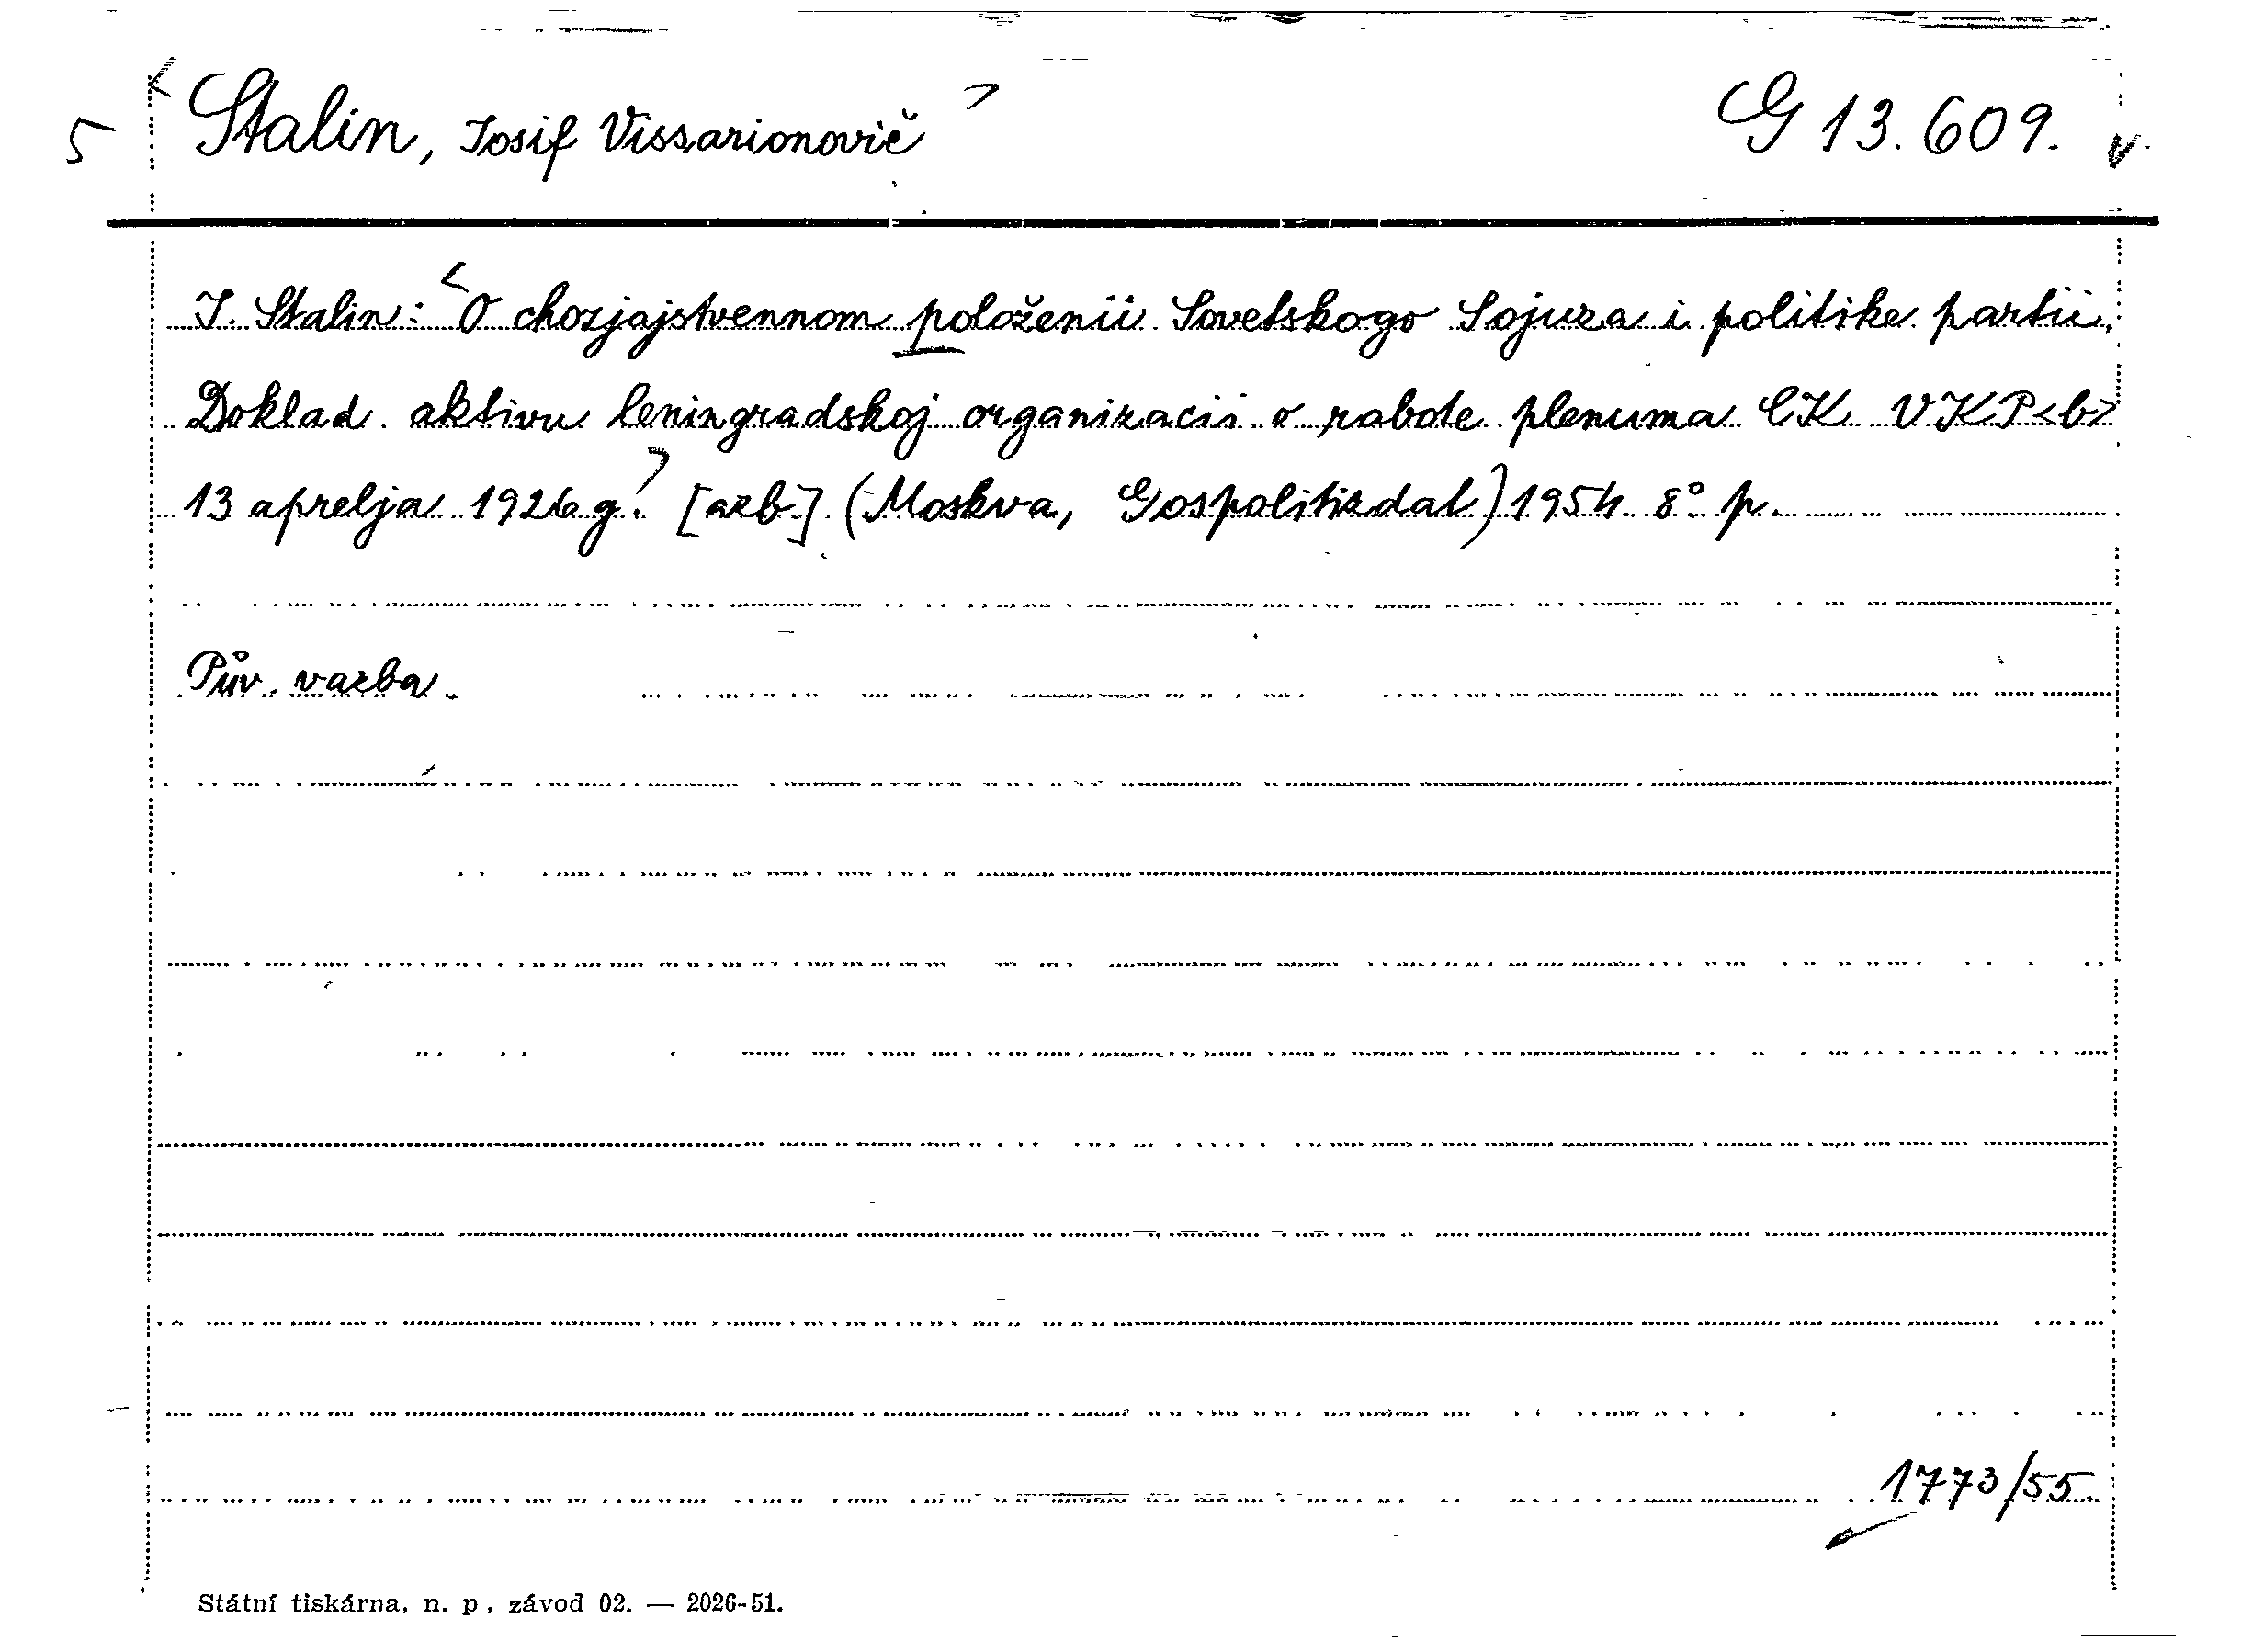 5 <Stalin, Iosif Vissarionovič> G 13.609. v.
I. Stalin: <O chozjajstvennom položenii Sovetskogo Sojuza i politike partii.
Doklad aktivu leningradskoj organizacii o rabote plenuma CK VKP<b>
13 aprelja 1926 g.> [azb.] (Moskva, Gospolitizdat) 1954 8° p.
Pův. vazba.
1773/55.
Státní tiskárna, n. p., závod 02. — 2026-51.